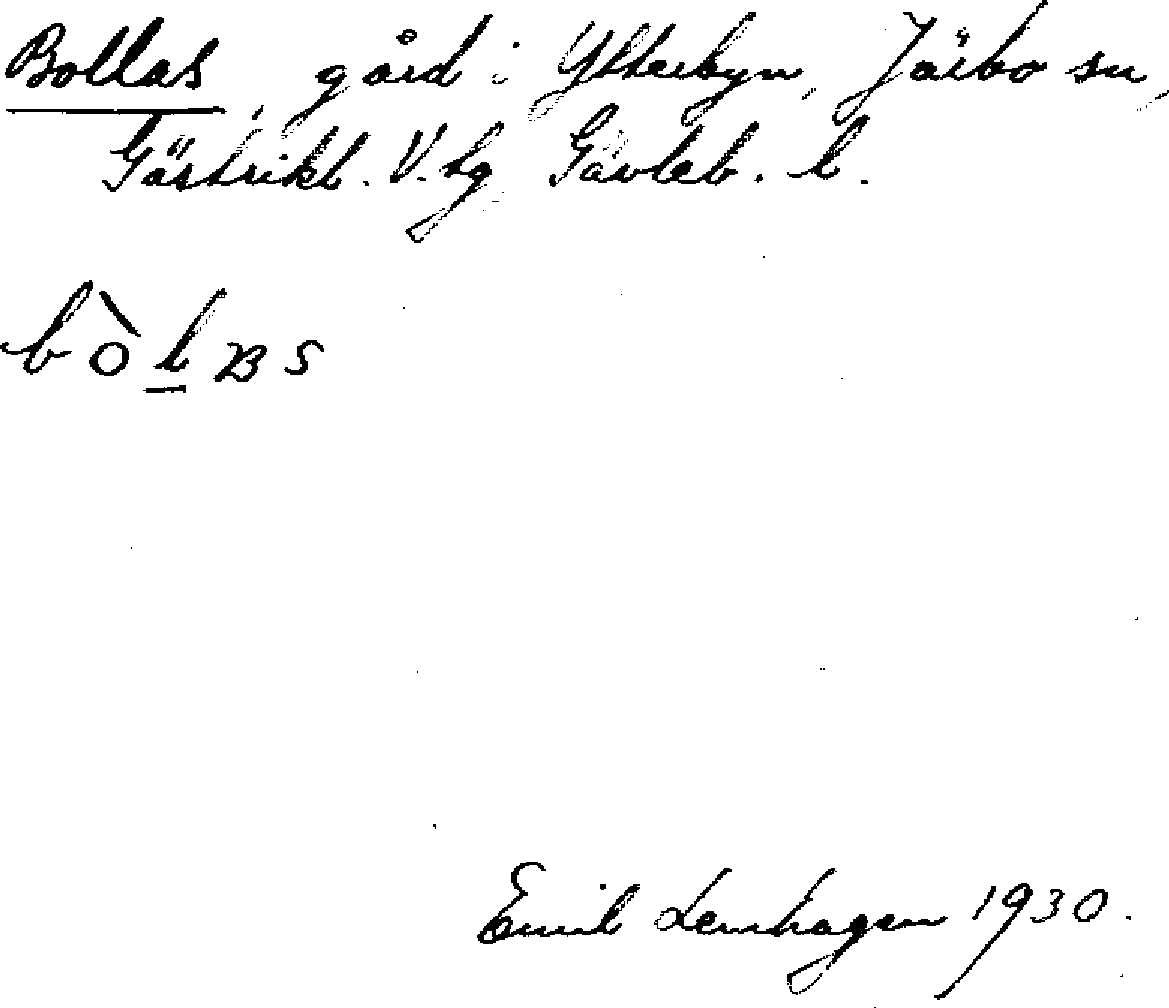 Bollas, gård i Ytterbyn, Järbo sn,
Gästrikl. V. tg Gävleb. l.
bòl̠ʙs
Emil Lenhagen 1930.